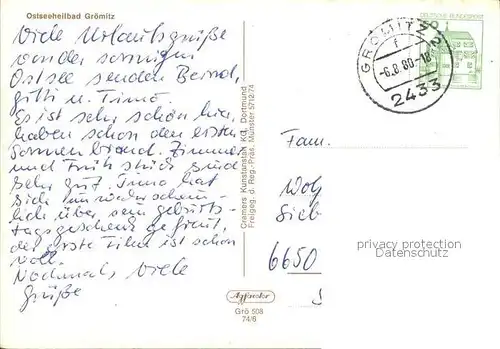 Ostseeheilbad Grömitz
Viele Urlaubsgrüße
von der sonnigen
Ostsee senden Bernd,
Gitti u. Timo.
Es ist sehr schön hier,
haben schon den ersten
Sonnenbrand. Zimmer
und Frühstück sind
sehr gut. Timo hat
sich
lich über sein Geburts-
tagsgeschenk gefreut,
der erste Film ist schon
voll.
Nochmals viele
Grüße
Cramers Kunstanstalt KG, Dortmund
Freigeg. d. Reg.-Präs. Münster 5793/74
Grö 508
74/8
DEUTSCHE BUNDESPOST
GRÖMITZ 2
-6.8.80-18
2433
Fam.
Wolf
Sieb
6650
privacy protection
Datenschutz